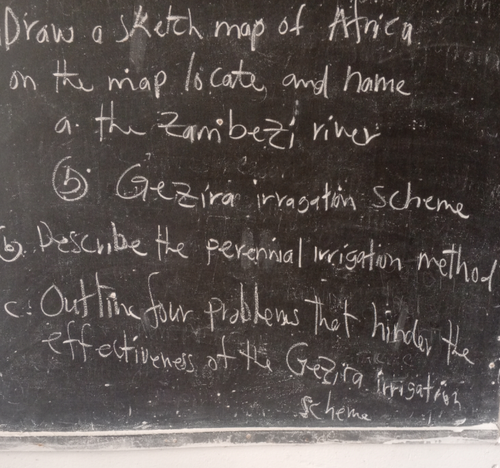 Draw a sketch map of Africa
on the map locate, and name
a. the Zambezi river
(b). Gezira irragation scheme
b. Describe the perennial irrigation method
c. Outline four problems that hinder the
effectiveness of the Gezira irrigation
scheme